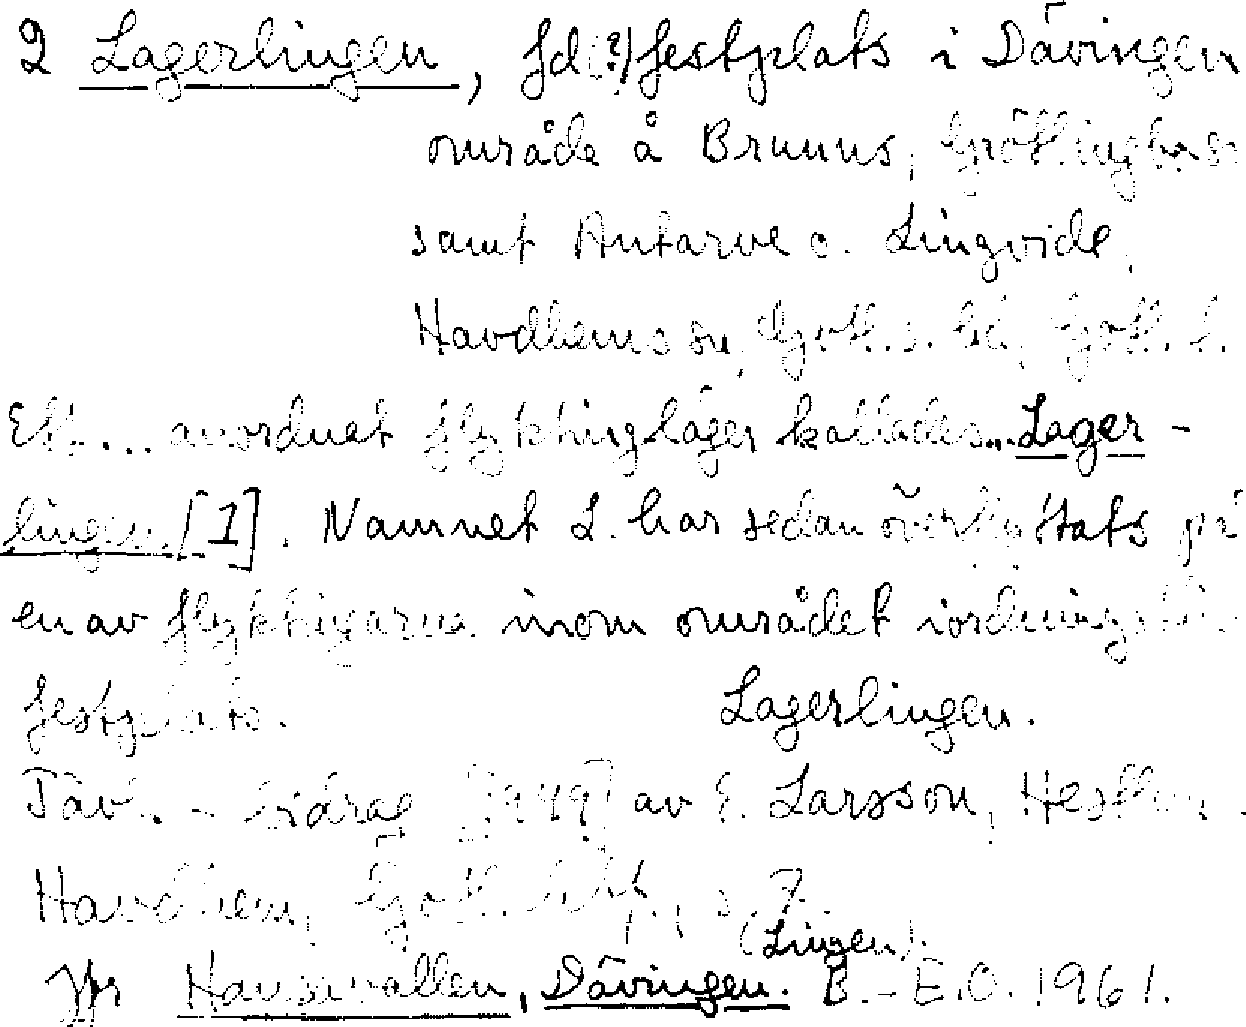 2 Lagerlingen, fd(?) festplats i Dävingen
område å Brunns, Grötlingbo sn
samt Antarve o. Lingvide,
Havdhems sn, Gotl. s. hd, Gotl. l.
Ett... anordnat flyktingläger kallades... Lager-
lingen [1]. Namnet L. har sedan överflyttats på
en av flyktingarna inom området iordningsställd
festplats. Lagerlingen.
Tävl. - bidrag [1949] av E. Larsson,
Havdhem, Gotl. s. 7.
(Lingen).
Jfr Hausevallen, Dävingen. B.-E.O. 1961.